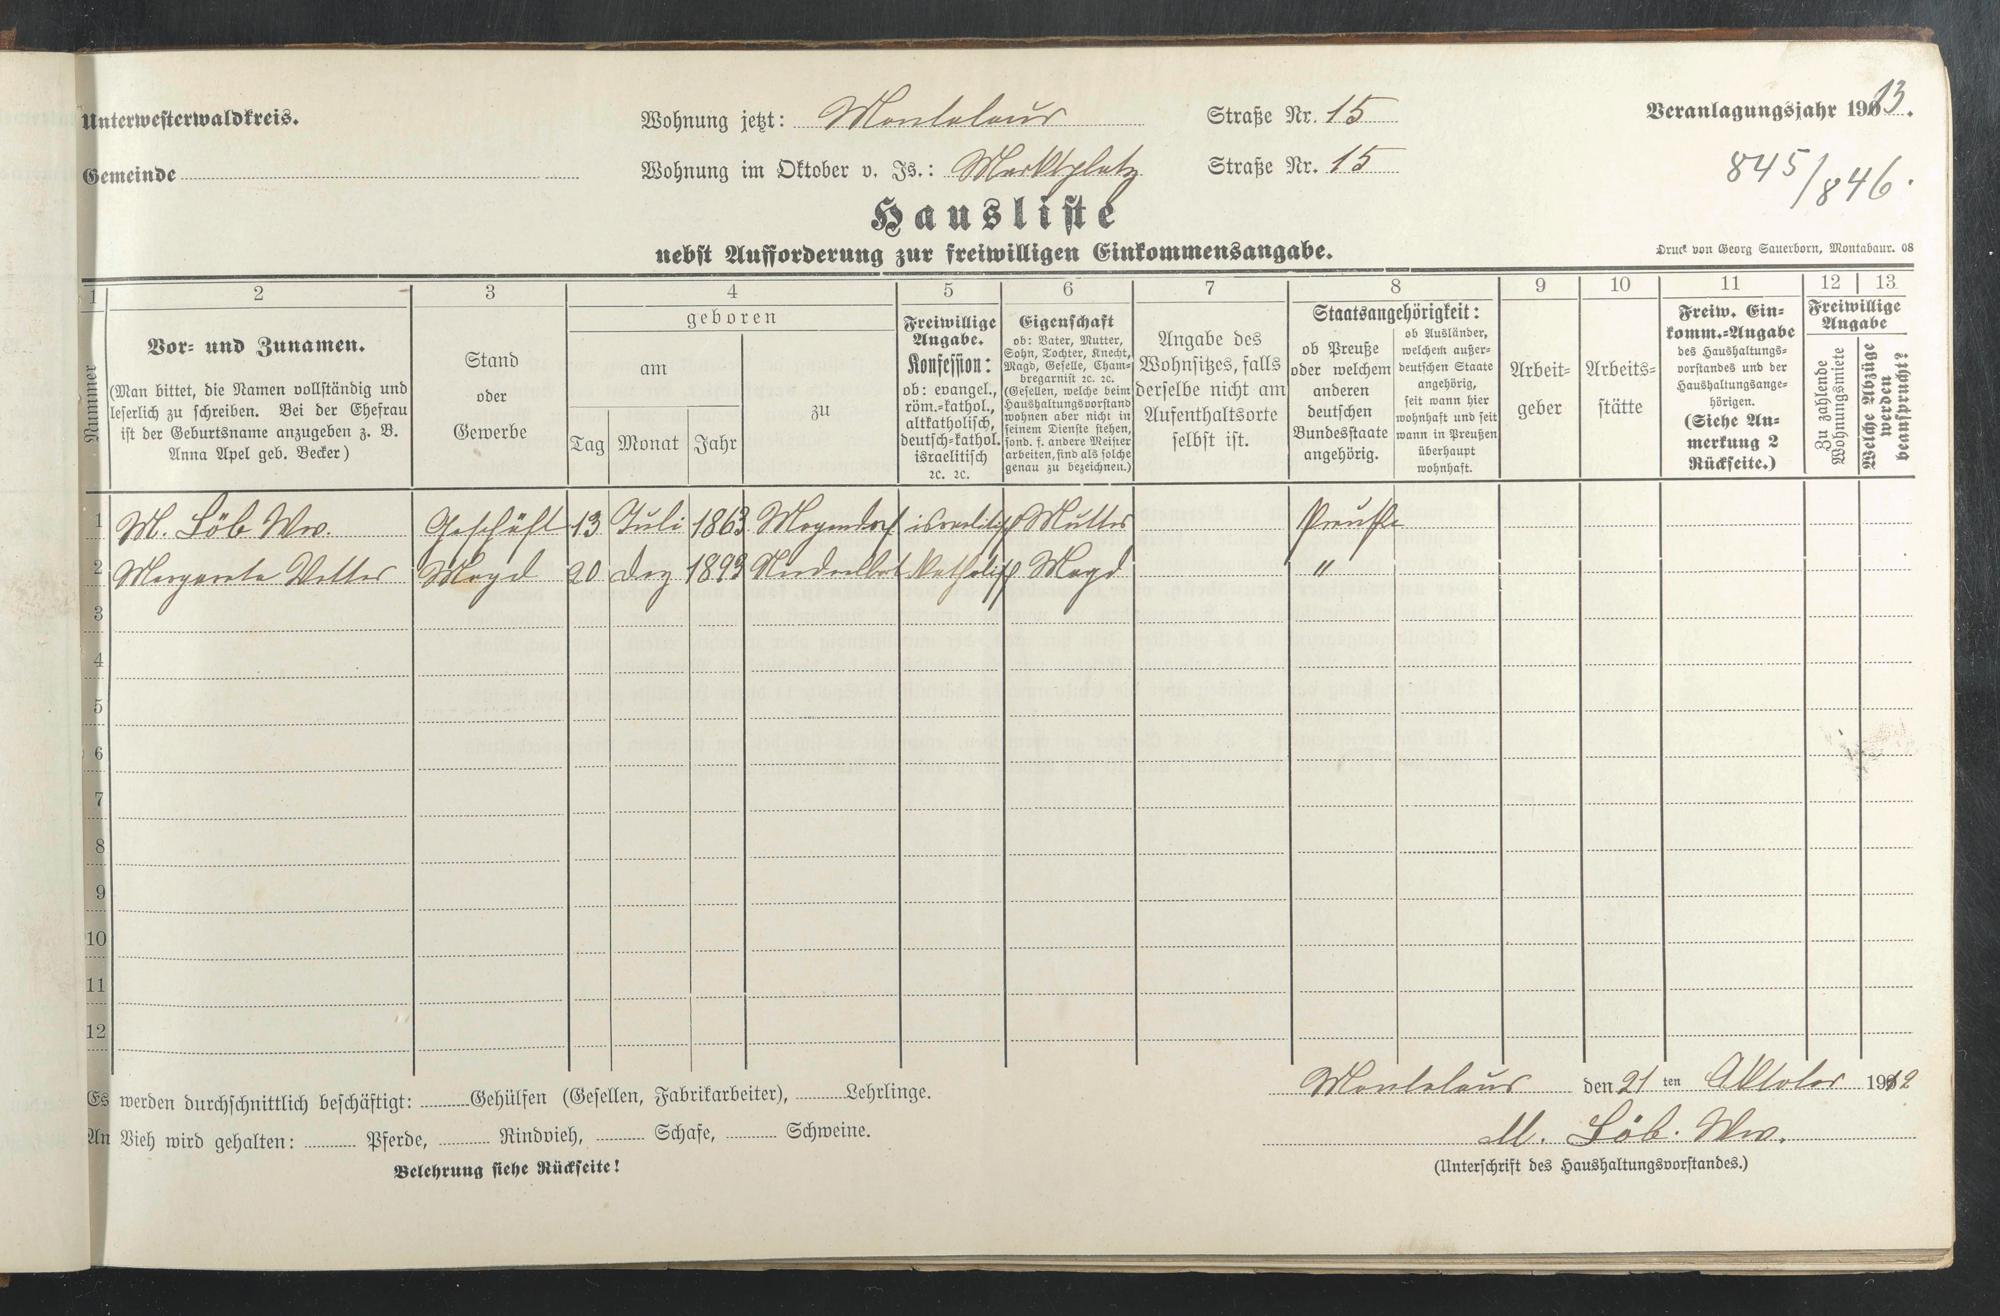 Unterwesterwaldkreis.
Wohnung jetzt: Montabaur Straße Nr. 15
Veranlagungsjahr 1913.
Gemeinde
Wohnung im Oktober v. Js.: Marktplatz Straße Nr. 15
845/846.
Hausliste
nebst Aufforderung zur freiwilligen Einkommensangabe.
Druck von Georg Sauerborn, Montabaur. 08
1 2 3 4 5 6 7 8 9 10 11 12 13
Nummer
Vor- und Zunamen.
(Man bittet, die Namen vollständig und
leserlich zu schreiben. Bei der Ehefrau
ist der Geburtsname anzugeben z. B.
Anna Apel geb. Becker)
Stand
oder
Gewerbe
geboren
am
Tag Monat Jahr
zu
Freiwillige
Angabe.
Konfession:
ob: evangel.,
röm.-kathol.,
altkatholisch,
deutsch-kathol.
israelitisch
2c. 2c.
Eigenschaft
ob: Vater, Mutter,
Sohn, Tochter, Knecht,
Magd, Geselle, Cham-
bregarnist 2c. 2c.
(Gesellen, welche beim
Haushaltungsvorstand
wohnen aber nicht in
seinem Dienste stehen,
sond. f. andere Meister
arbeiten, sind als solche
genau zu bezeichnen.)
Angabe des
Wohnsitzes, falls
derselbe nicht am
Aufenthaltsorte
selbst ist.
Staatsangehörigkeit:
ob Preuße
oder welchem
anderen
deutschen
Bundesstaate
angehörig.
ob Ausländer,
welchem außer-
deutschen Staate
angehörig,
seit wann hier
wohnhaft und seit
wann in Preußen
überhaupt
wohnhaft.
Arbeit-
geber
Arbeits-
stätte
Freiw. Ein-
komm.-Angabe
des Haushaltungs-
vorstandes und der
Haushaltungsange-
hörigen.
(Siehe An-
merkung 2
Rückseite.)
Freiwillige
Angabe
Zu zahlende
Wohnungsmiete
Welche Abzüge
werden
beansprucht?
1 M. Löb Ww. Geschäft 13 Juli 1863 Mogendorf israelitisch Mutter Preuße
2 Margareta Vetter Magd 20 Dez 1893 katholisch Magd "
3
4
5
6
7
8
9
10
11
12
Es werden durchschnittlich beschäftigt: Gehülfen (Gesellen, Fabrikarbeiter), Lehrlinge.
An Vieh wird gehalten: Pferde, Rindvieh, Schafe, Schweine.
Belehrung siehe Rückseite!
Montabaur den 21 ten Oktober 1912
M. Löb. Ww.
(Unterschrift des Haushaltungsvorstandes.)